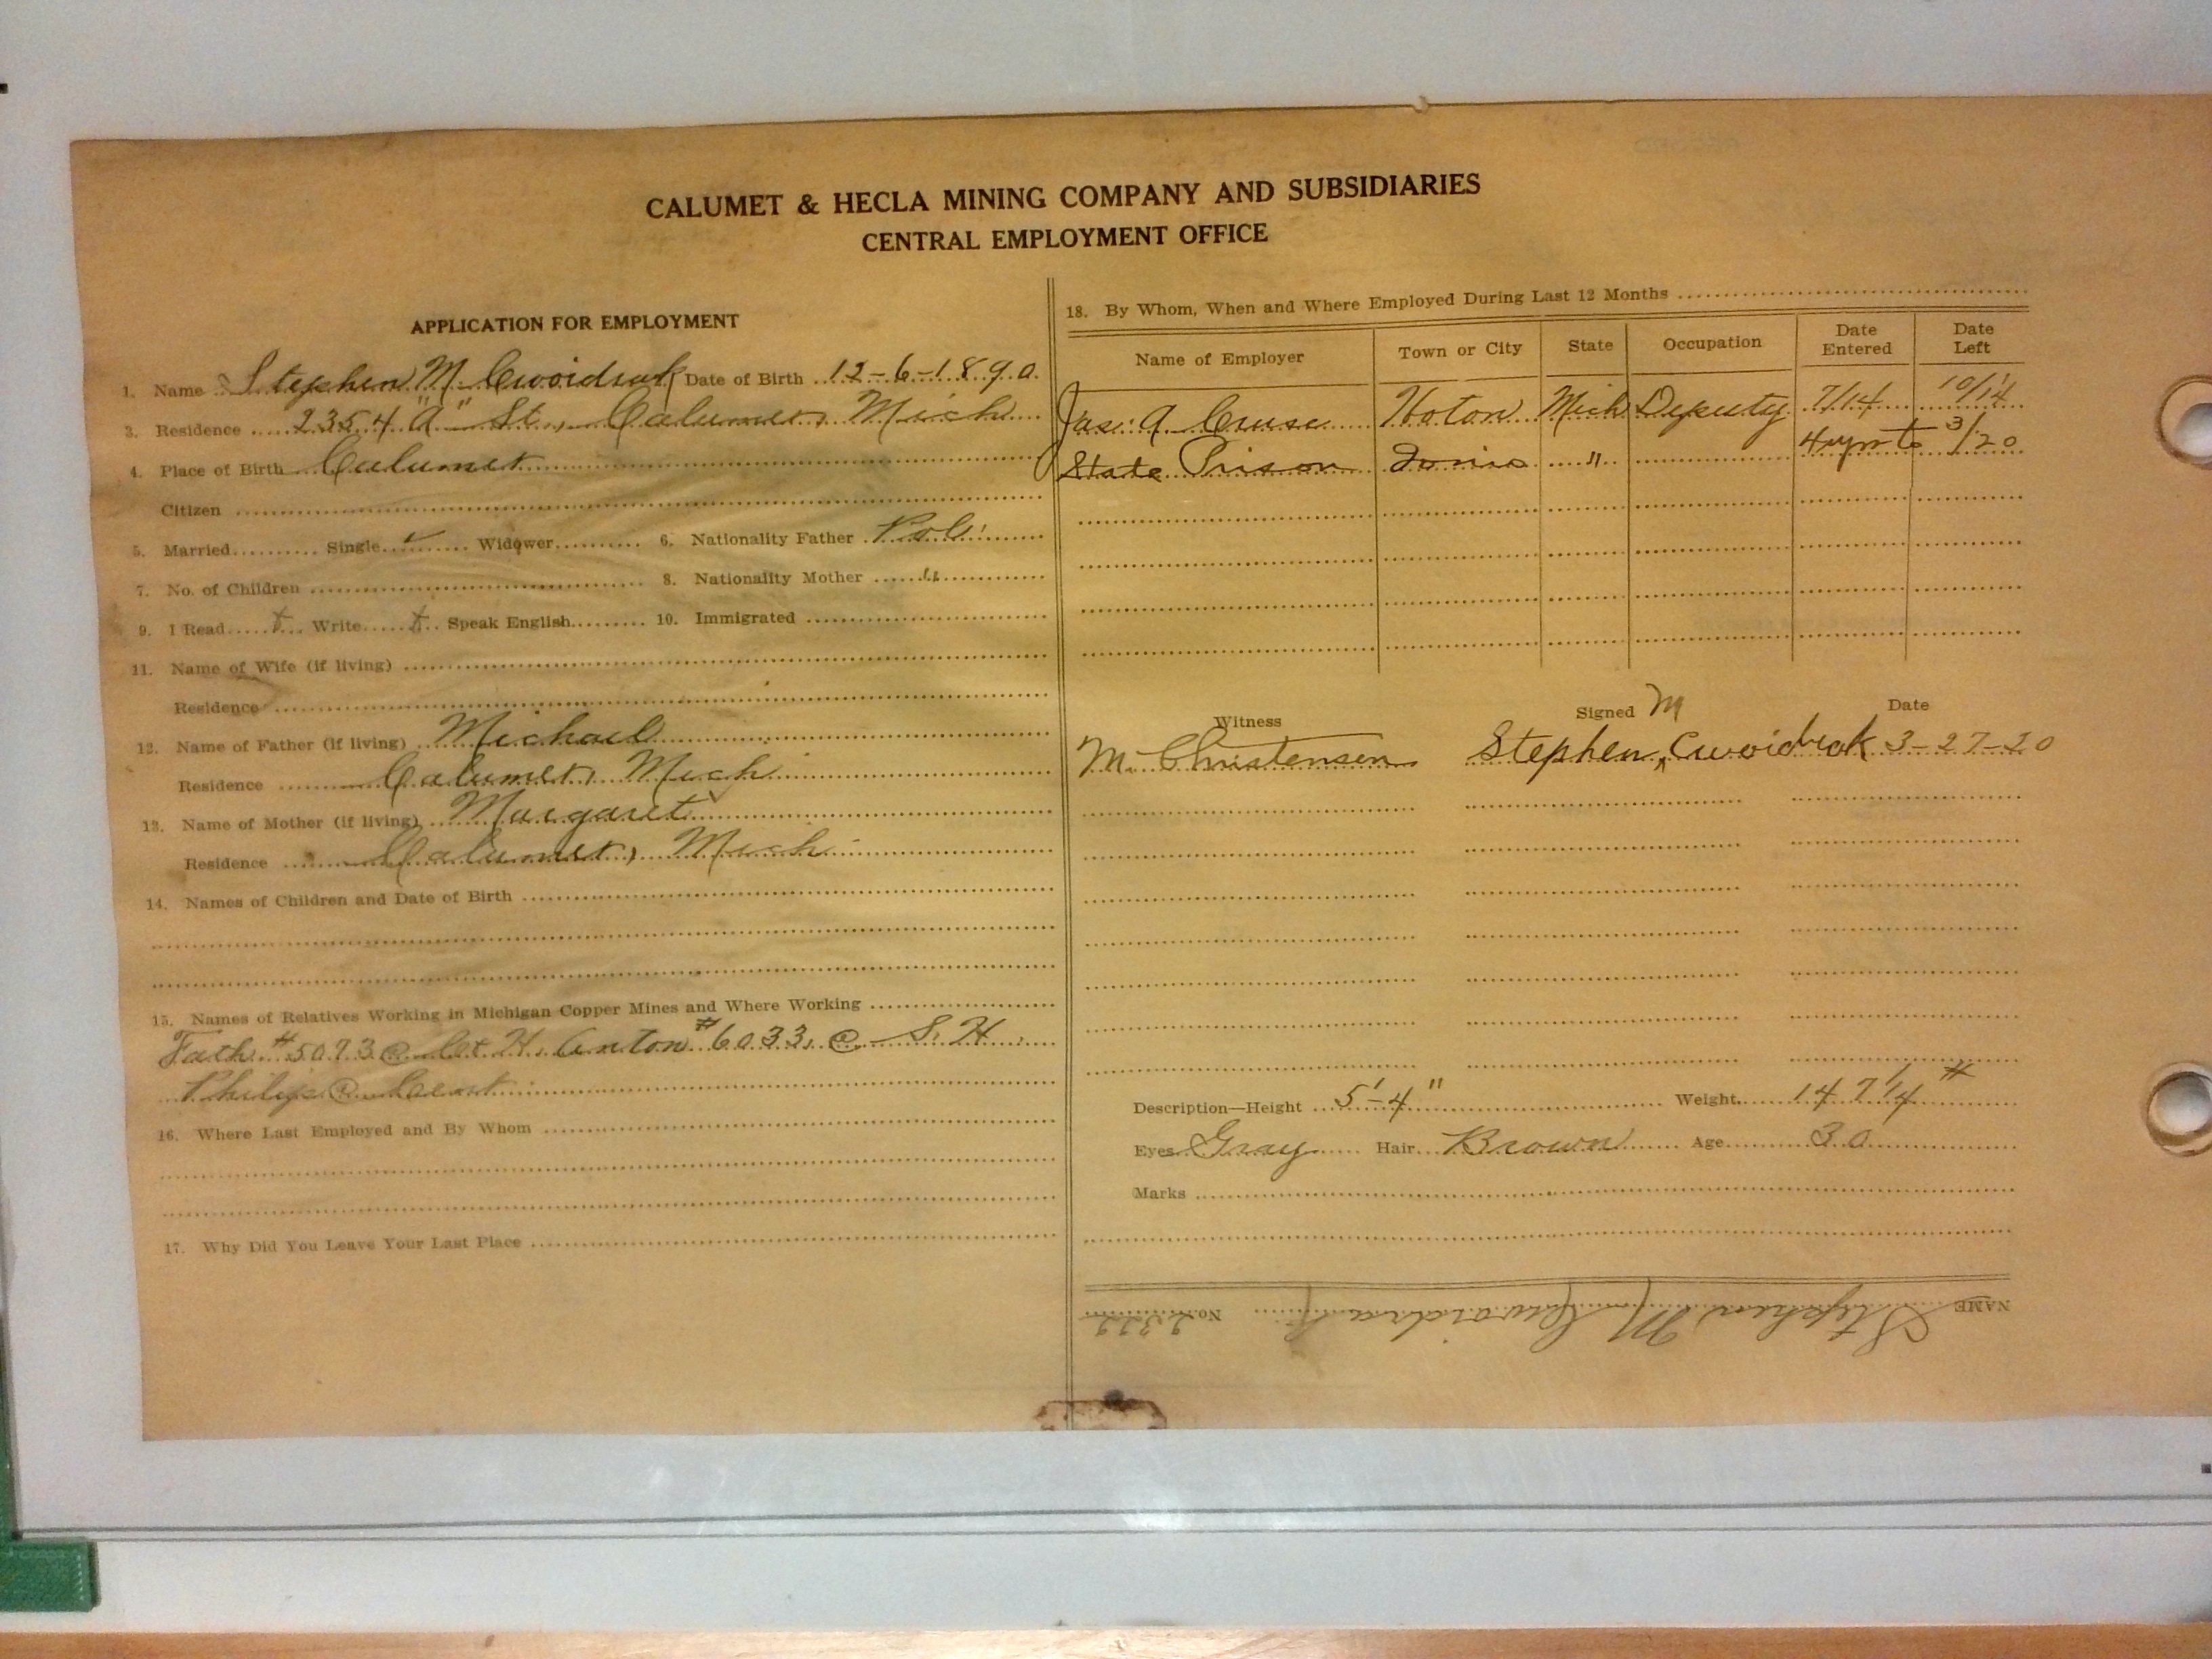 CALUMET & HECLA MINING COMPANY AND SUBSIDIARIES
CENTRAL EMPLOYMENT OFFICE
APPLICATION FOR EMPLOYMENT
1. Name Stephen M. Cwoidrak Date of Birth 12-6-1890
3. Residence 2354 "A" St., Calumet, Mich
4. Place of Birth Calumet
Citizen
5. Married Single ✓ Widower 6. Nationality Father Pol.
7. No. of Children 8. Nationality Mother "
9. I Read Write Speak English 10. Immigrated
11. Name of Wife (if living)
Residence
12. Name of Father (if living) Michael
Residence Calumet, Mich
13. Name of Mother (if living) Margaret
Residence Calumet, Mich
14. Names of Children and Date of Birth
15. Names of Relatives Working in Michigan Copper Mines and Where Working
Fath. #5093 @ C & H. Anton #6033 @ S. H.
Philip @ Cent.
16. Where Last Employed and By Whom
17. Why Did You Leave Your Last Place
18. By Whom, When and Where Employed During Last 12 Months
Name of Employer Town or City State Occupation Date Entered Date Left
Jas. A. Cruse Hoton Mich Deputy 7/14 10/14
State Prison Ionia " 4 yrs to 3/20
Witness Signed Date
M. Christensen Stephen M Cwoidrak 3-27-20
Description—Height 5'-4" Weight 147 1/4 #
Eyes Gray Hair Brown Age 30
Marks
NAME Stephen M Cwoidrak No. 2322